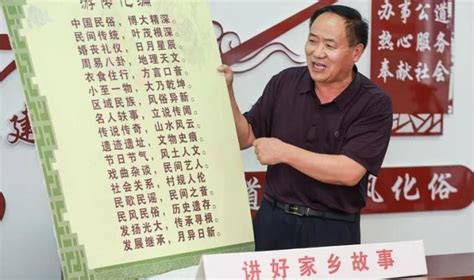 中国民俗，博大精深。
民间传统，叶茂根深。
婚丧礼仪，日月星辰。
周易八卦，地理天文。
衣食住行，方言口音。
小至一物，大乃乾坤。
区域民族，风俗异新。
名人轶事，立说传闻。
传说传奇，山水风云。
遗迹遗址，文物史痕。
节日节气，风土人文。
戏曲杂谈，民间艺人。
社会关系，村规人伦
民歌民谣，民间之音。
民风民俗，历史遗存。
发扬光大，传承寻根。
发展继承，月异日新。
办事公道
热心服务
奉献社会
建
道
风化俗
讲好家乡故事